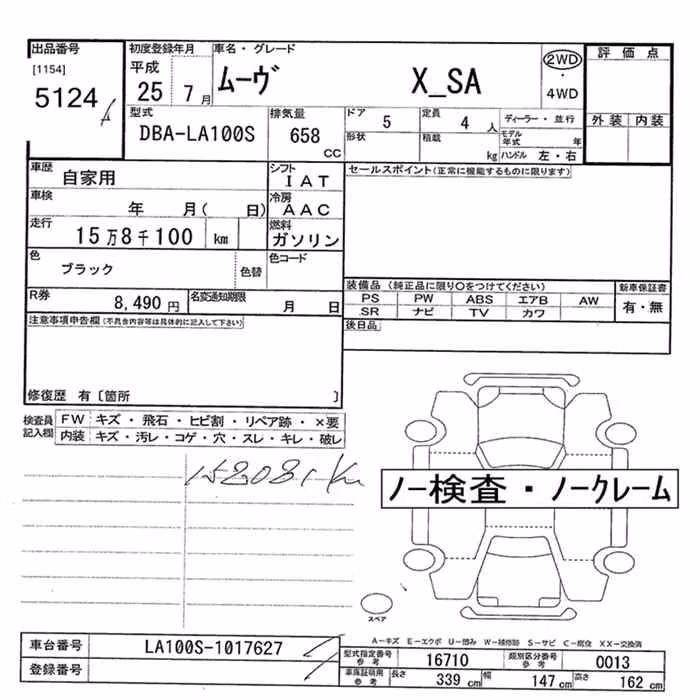 出品番号
[1154]
5124
初度登録年月
平成
25 7月
車名・グレード
ムーヴ X_SA
2WD
・
4WD
評価点
外装 内装
型式
DBA-LA100S
排気量
658
CC
ドア 5
定員 4 人
形状
積載 kg
ディーラー・並行
モデル年式 年
ハンドル 左・右
車歴 自家用
シフト
IAT
セールスポイント(正常に機能するものに限ります)
車検 年 月( 日)
冷房
AAC
走行 15万8千100 km
燃料
ガソリン
色 ブラック 色替
色コード
R券 8,490 円
名変通知期限 月 日
装備品 (純正品に限り○をつけてください)
新車保証書
PS PW ABS エアB AW
SR ナビ TV カワ
有・無
後日品
注意事項申告欄(不具合内容等は具体的に記入して下さい)
修復歴 有〔箇所 〕
検査員記入欄
FW キズ・飛石・ヒビ割・リペア跡・×要
内装 キズ・汚レ・コゲ・穴・スレ・キレ・破レ
158081Km
ノー検査・ノークレーム
スペア
A-キズ E-エクボ U-凹み W-補修跡 S-サビ C-腐食 XX-交換済
車台番号 LA100S-1017627
登録番号
型式指定番号参考 16710
類別区分番号参考 0013
車庫証明用参考 長さ 339 cm 幅 147 cm 高さ 162 cm